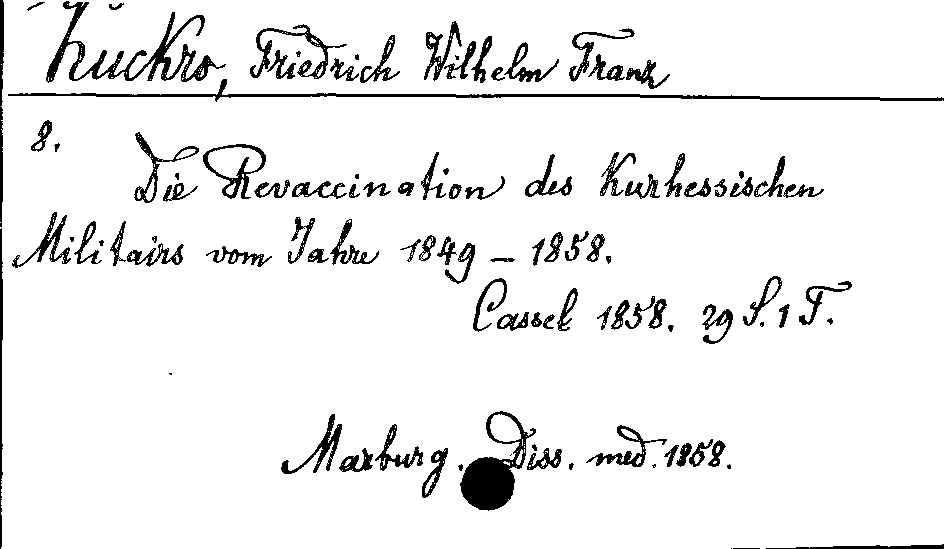 Kuckro, Friedrich Wilhelm Franz
8.
Die Revaccination des Kurhessischen
Militairs vom Jahre 1849 – 1858.
Cassel 1858. 29 S. 1 T.
Marburg. Diss. med. 1858.